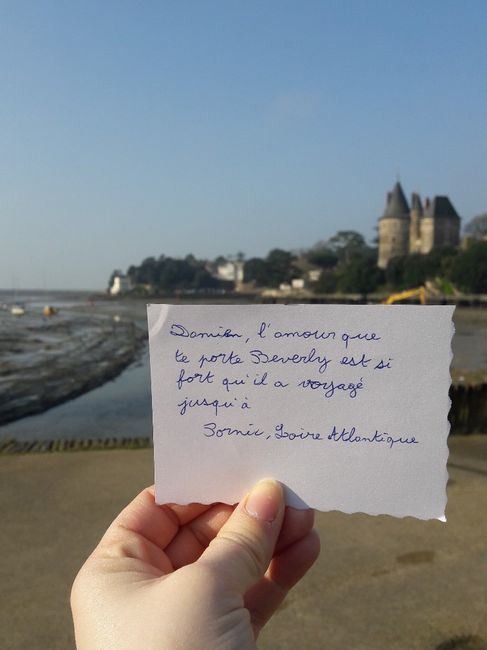 Damien, l'amour que
te porte Beverly est si
fort qu'il a voyagé
jusqu'à
Pornic, Loire Atlantique